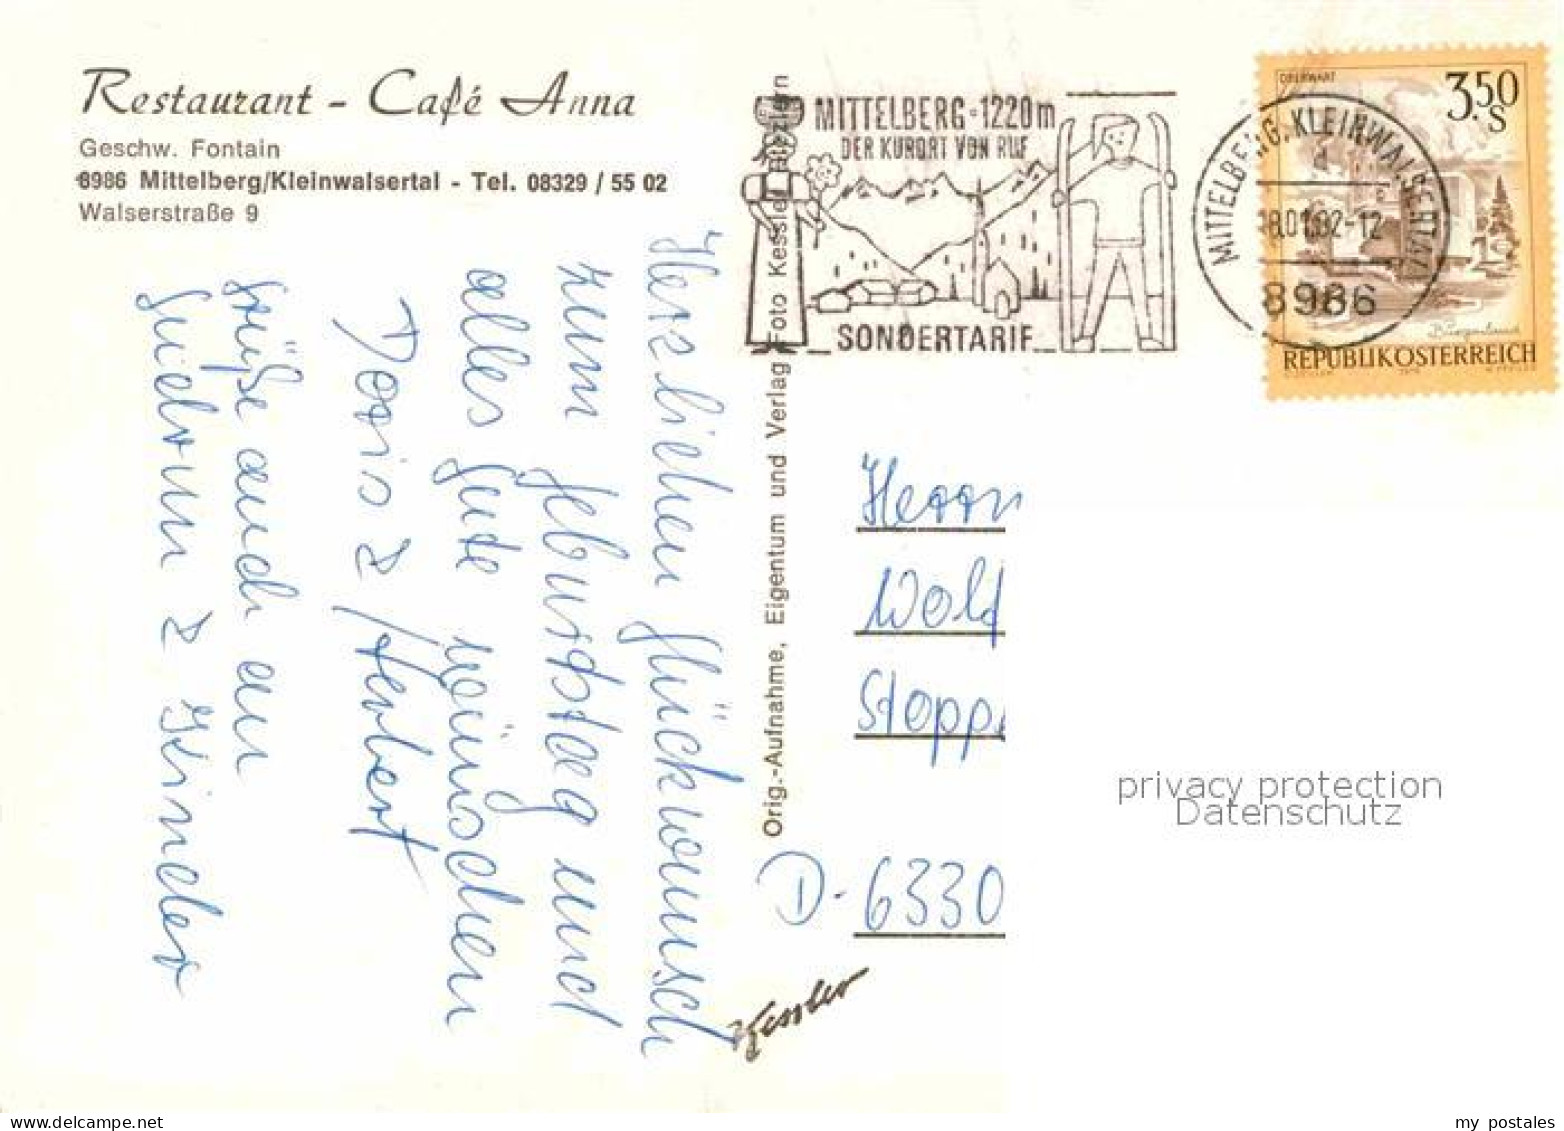 Restaurant - Café Anna
Geschw. Fontain
8986 Mittelberg/Kleinwalsertal - Tel. 08329 / 55 02
Walserstraße 9
Herzlichen Glückwunsch
zum Geburtstag und
alles Gute wünschen
Doris & Herbert
Grüße auch an
Gudrun & Kinder
Orig.-Aufnahme, Eigentum und Verlag Foto Kessler
MITTELBERG-1220m
DER KURORT VON RUF
SONDERTARIF
MITTELBERG, KLEINWALSERTAL
8986
OBERWART
3.50
S
REPUBLIK ÖSTERREICH
Herrn
Wolf
Stopp
D-6330
Kessler
privacy protection
Datenschutz
my postales